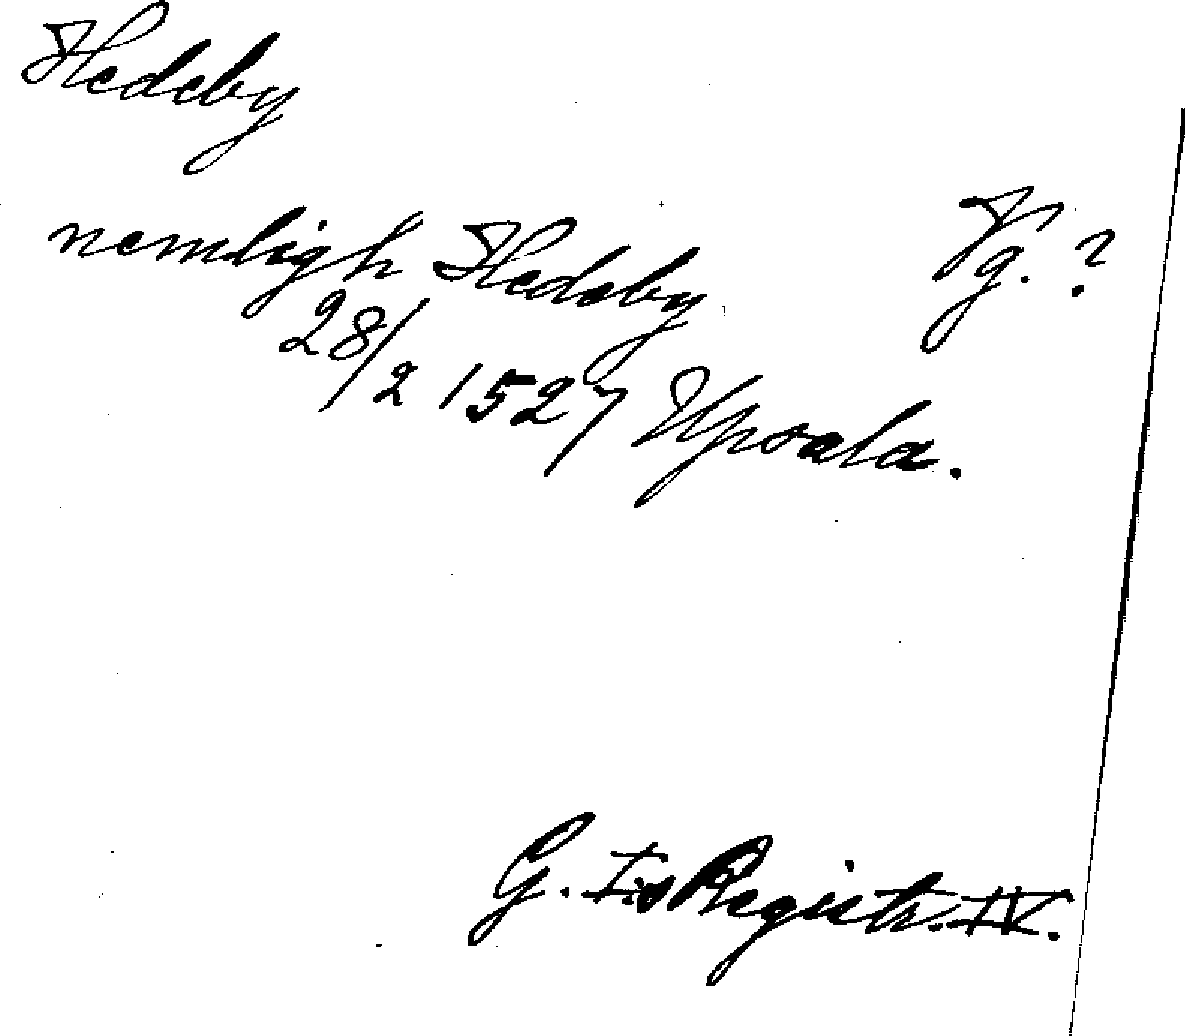 Hedeby
Vg. ?
nemligh Hedeby
28/2 1527 Upsala.
G. I:s Registr. IV.